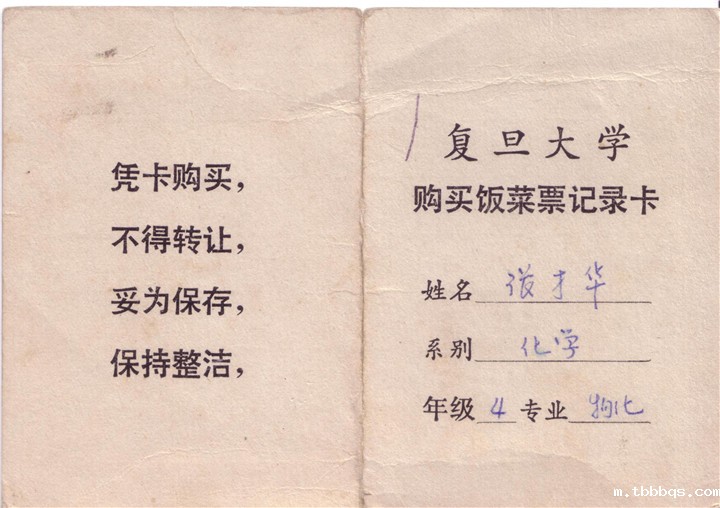 凭卡购买，
不得转让，
妥为保存，
保持整洁，
复旦大学
购买饭菜票记录卡
姓名 张才华
系别 化学
年级 4 专业 物化
m.tbbbqs.com